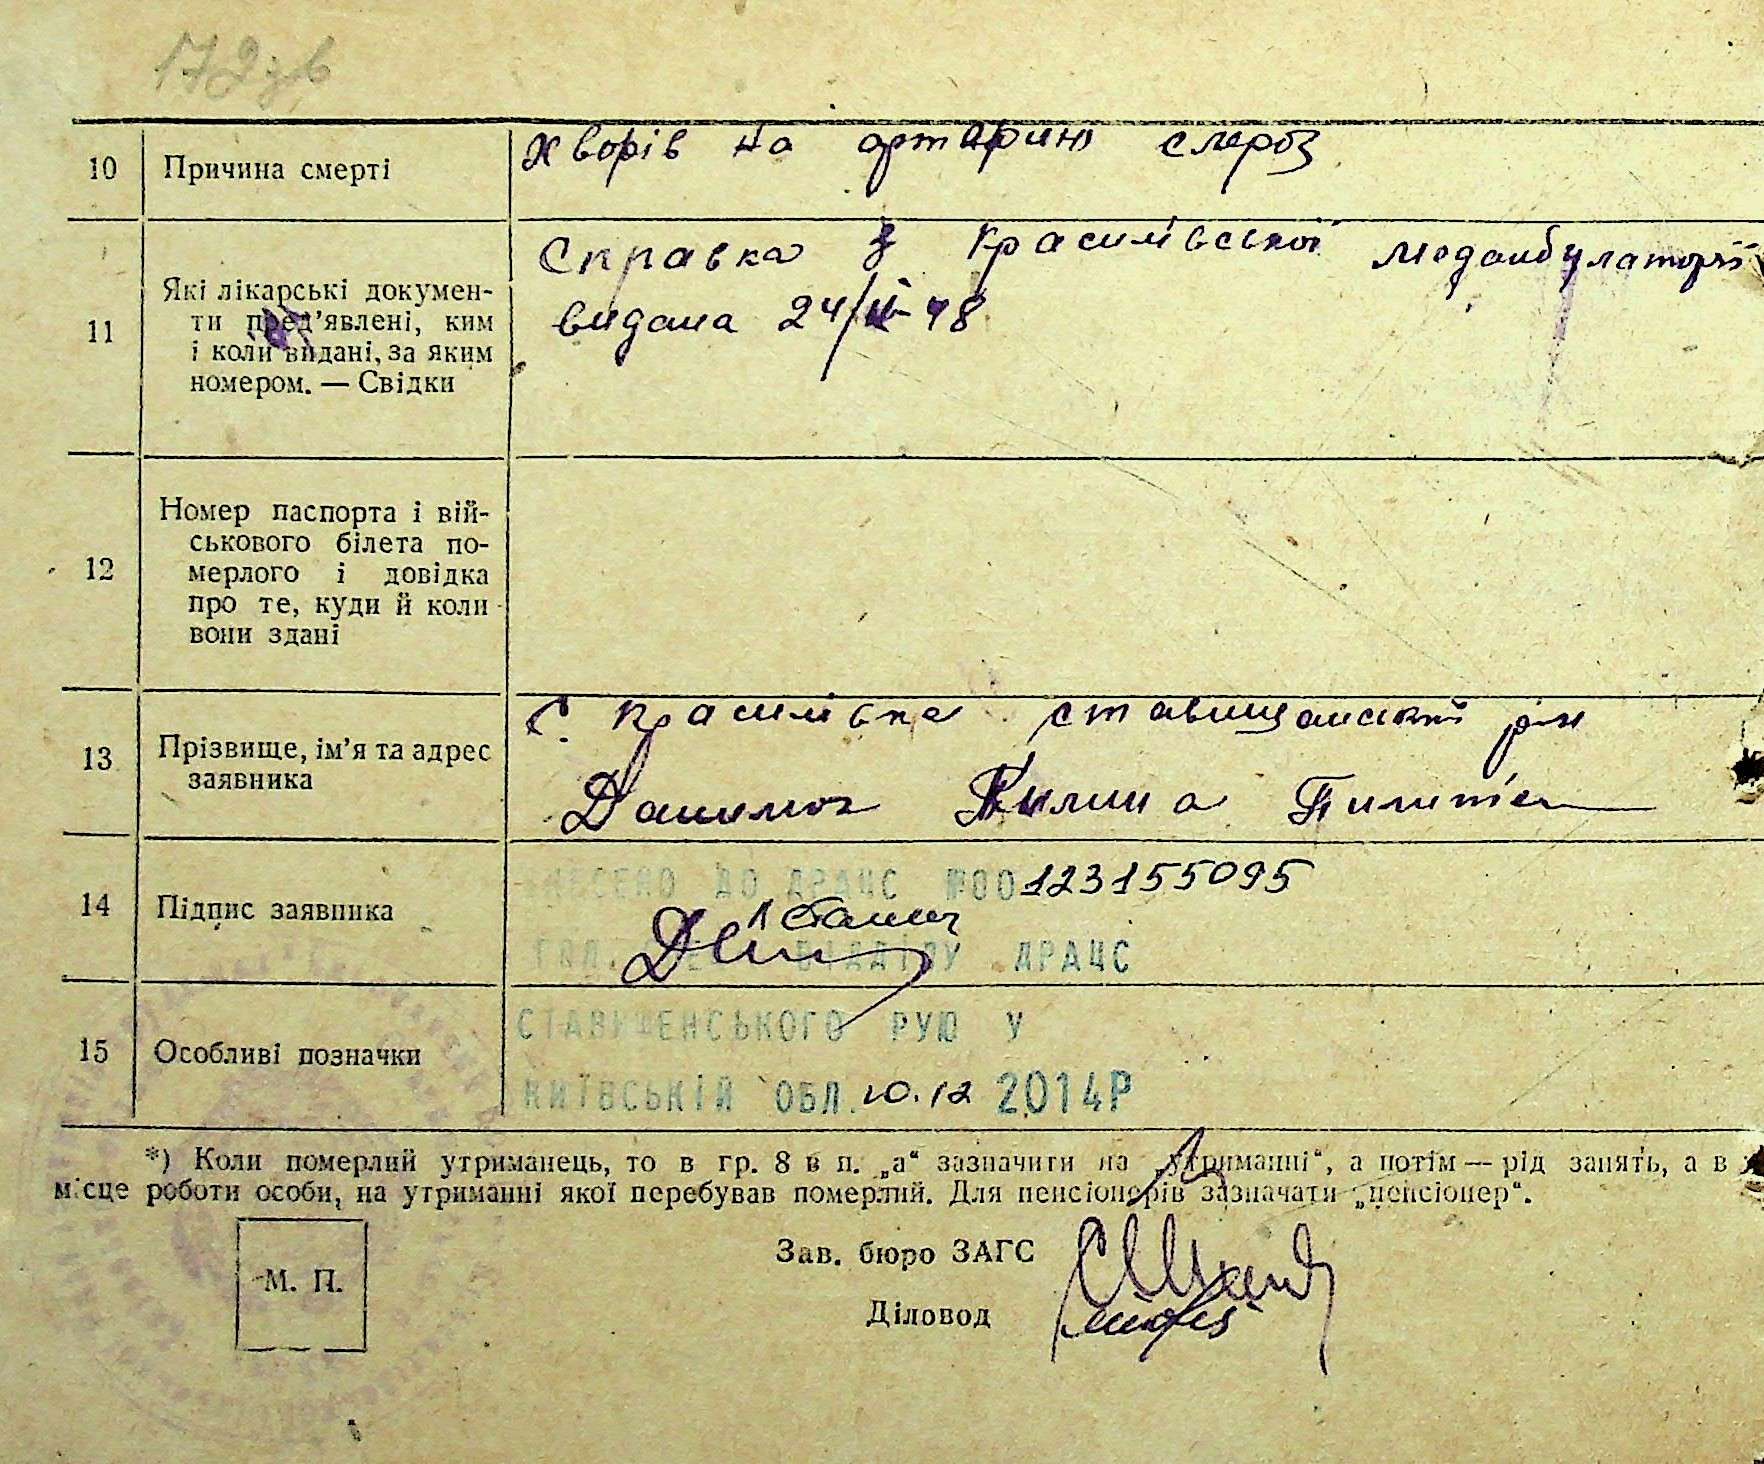 172зв
10 Причина смерті
Хворів на артаріни слероз
11 Які лікарські докумен-
ти пред’явлені, ким
і коли видані, за яким
номером. — Свідки
Справка з Красилівської медамбулаторії
видана 24/ 48
12 Номер паспорта і вій-
ськового білета по-
мерлого і довідка
про те, куди й коли
вони здані
13 Прізвище, ім’я та адрес
заявника
С. Красилівка ставищанський р-н
Килина
14 Підпис заявника
ВНЕСЕНО ДО ДРАЦС №00123155095
ВІДДІЛУ ДРАЦС
15 Особливі позначки
СТАВИЩЕНСЬКОГО РУЮ У
КИЇВСЬКІЙ ОБЛ. 10.12 2014Р
*) Коли померлий утриманець, то в гр. 8 в п. „а“ зазначити на „утриманні“, а потім — рід занять, а в
місце роботи особи, на утриманні якої перебував померлий. Для пенсіонерів зазначати „пенсіонер“.
Зав. бюро ЗАГС
М. П.
Діловод